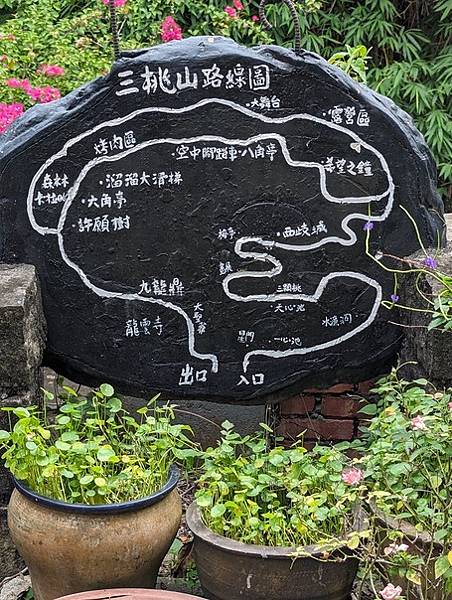 三桃山路線圖
大舞台
露營區
烤肉區
空中閒踏車・八角亭
希望之鐘
森林木
溜溜大滑梯
大角亭
許願樹
西岐城
九龍鼎
三顆桃
天心池
水濂洞
大聖寮
龍雲寺
一心池
出口
入口